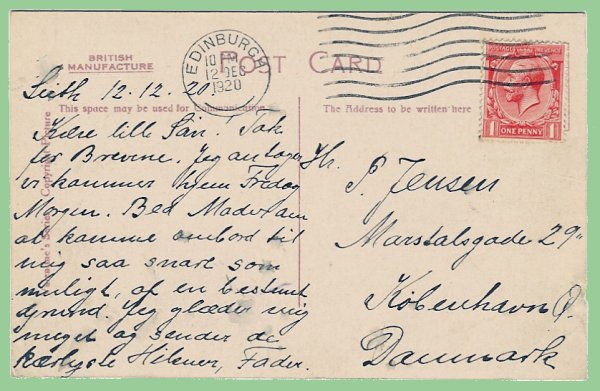 BRITISH
MANUFACTURE
POST CARD
EDINBURGH
12 DEC
1920
POSTAGE REVENUE
ONE PENNY
1 1
Leith 12.12.20
This space may be used for Communication
The Address to be written here
Kære lille Søn! Tak
for Brevene. Jeg antager
vi kommer hjem Fredag
Morgen. Bed Moder om
at komme ombord til
mig saa snart som
muligt, af en bestemt
Grund. Jeg glæder mig
meget og sender de
kærligste Hilsner, Fader.
Hr.
P. Jensen
Marstalsgade 29
København Ø.
Danmark
Series Copyright Picture